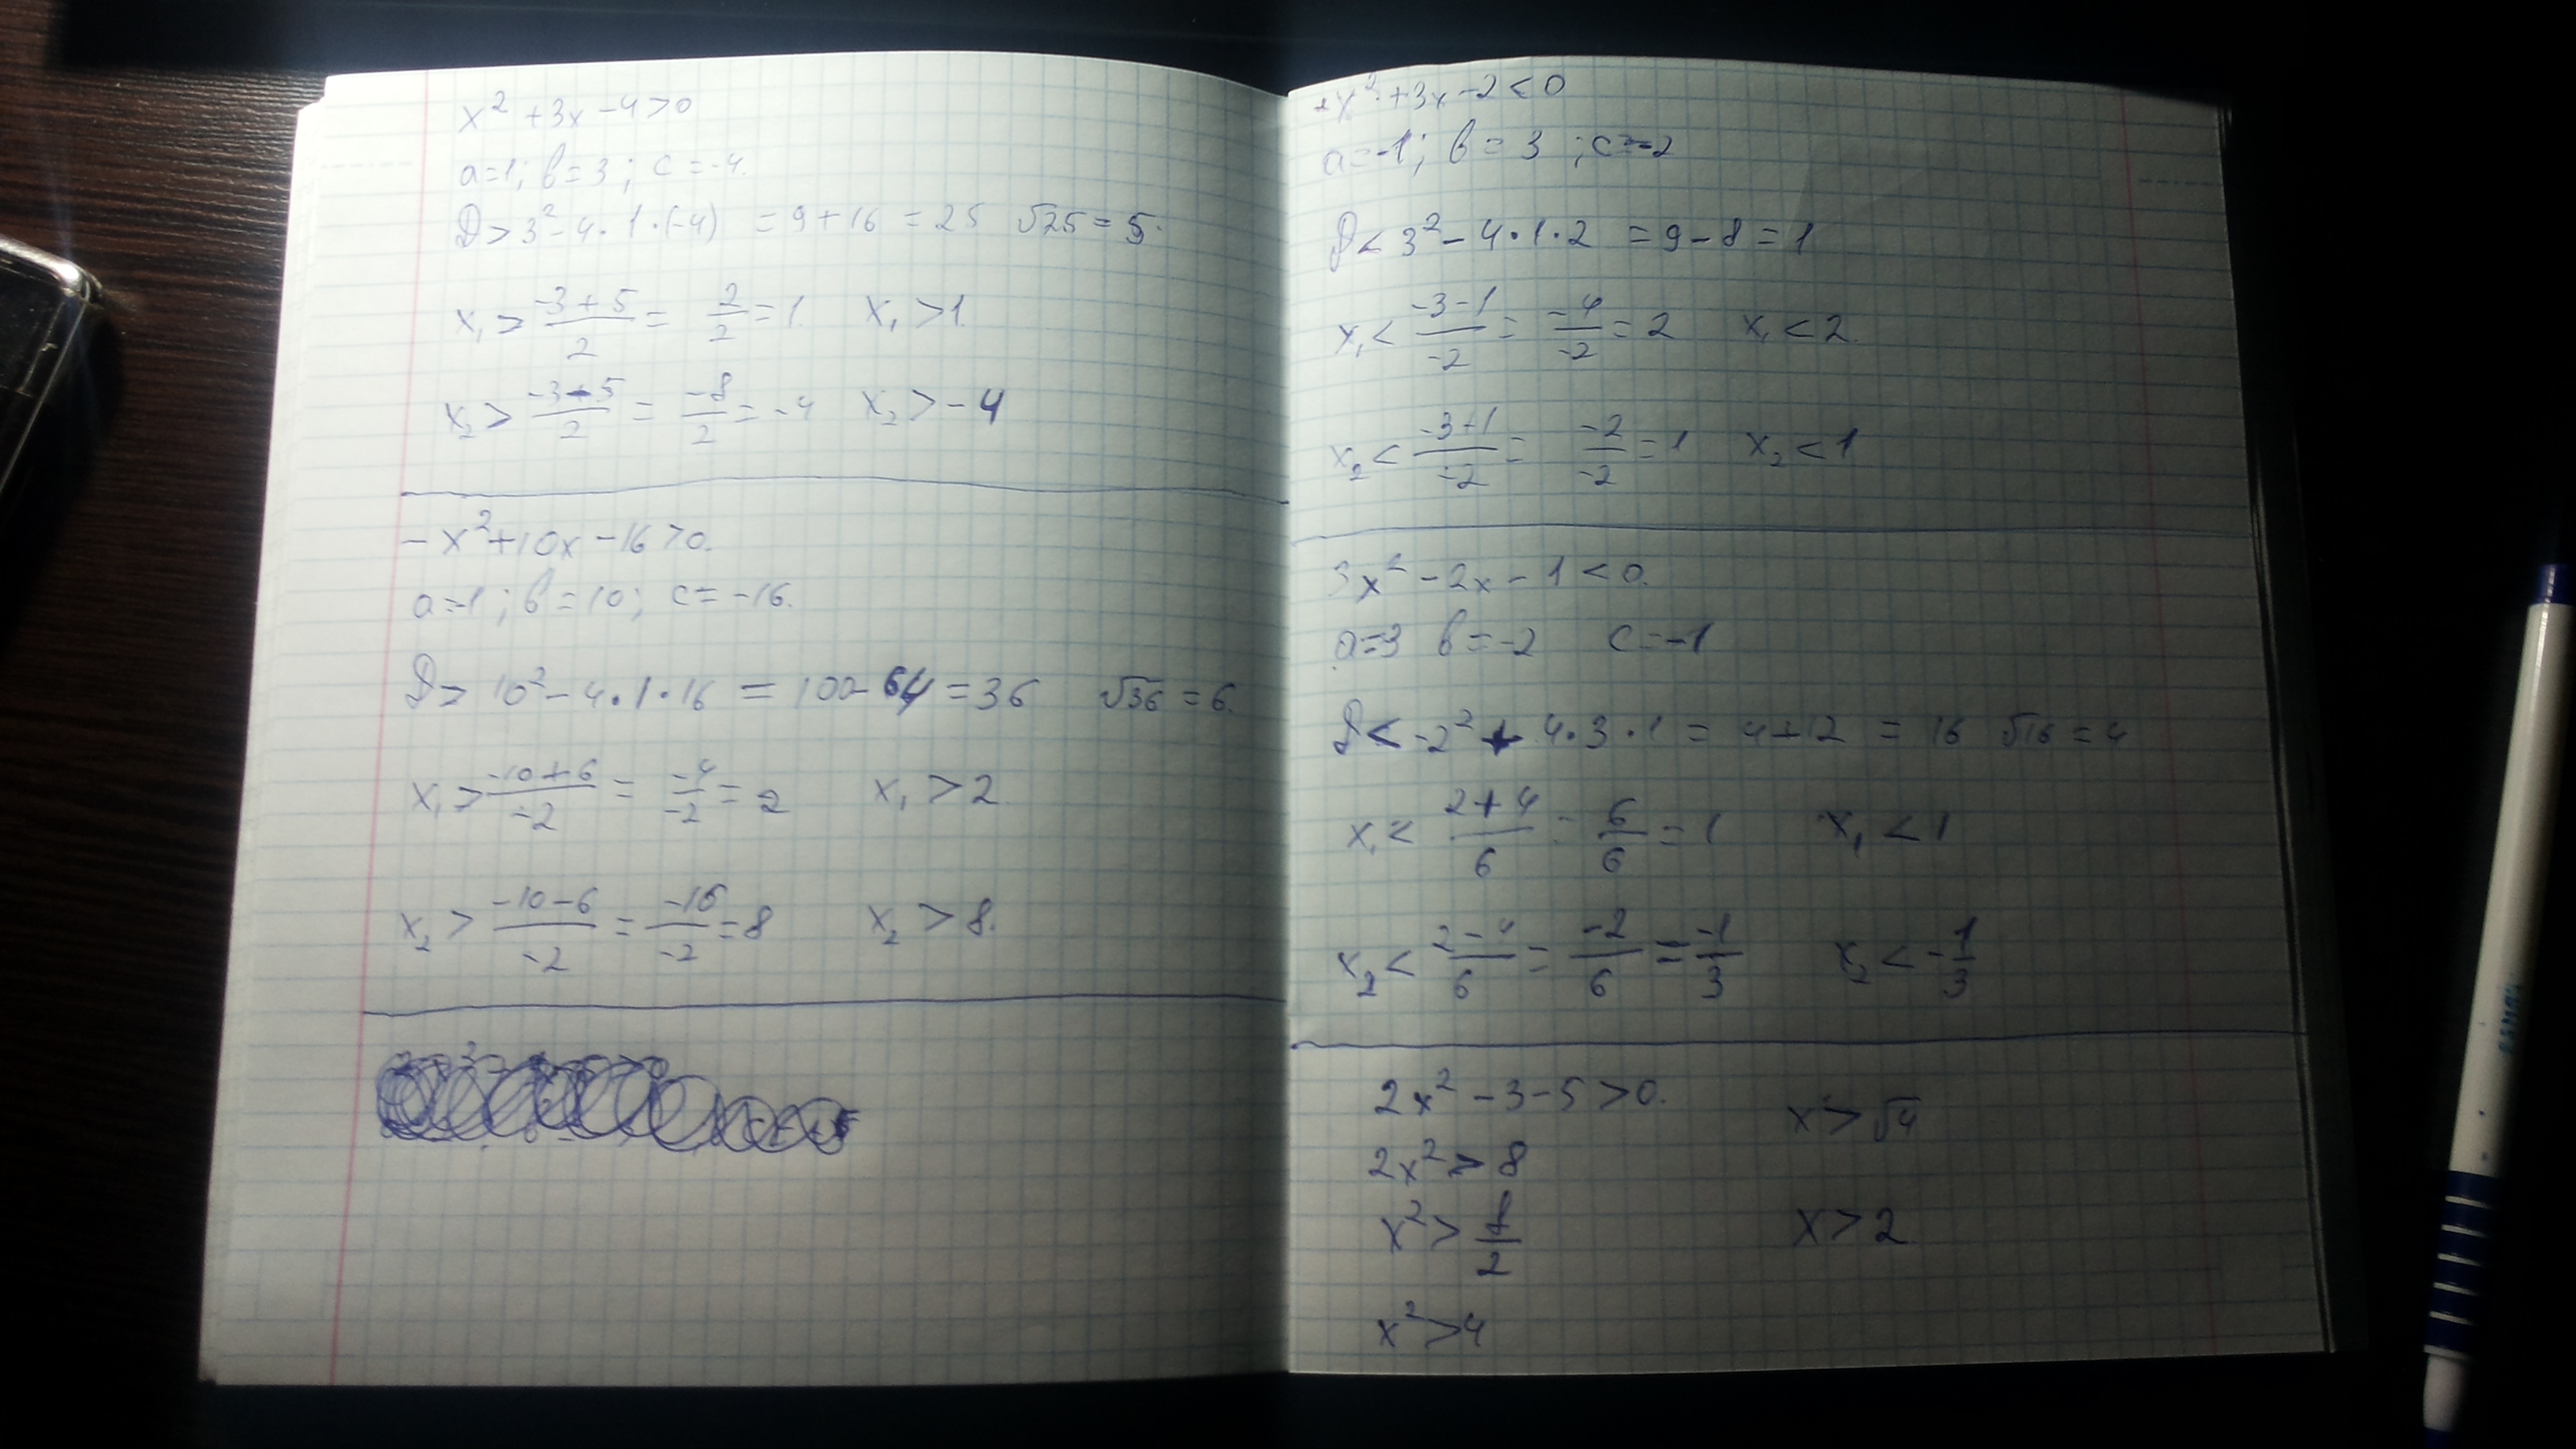 x² + 3x - 4 > 0
a = 1; в = 3; c = -4.
D > 3² - 4 · 1 · (-4) = 9 + 16 = 25 √25 = 5.
x₁ > (-3 + 5)/2 = 2/2 = 1. x₁ > 1.
x₂ > (-3 - 5)/2 = -8/2 = -4 x₂ > -4
- x² + 10x - 16 > 0.
a = -1; в = 10; c = -16.
D > 10² - 4 · 1 · 16 = 100 - 64 = 36 √36 = 6.
x₁ > (-10 + 6)/-2 = -4/-2 = 2 x₁ > 2.
x₂ > (-10 - 6)/-2 = -16/-2 = 8 x₂ > 8.
-x² + 3x - 2 < 0
a = -1; в = 3; c = -2
D < 3² - 4 · 1 · 2 = 9 - 8 = 1
x₁ < (-3 - 1)/-2 = -4/-2 = 2 x₁ < 2.
x₂ < (-3 + 1)/-2 = -2/-2 = 1 x₂ < 1
3x² - 2x - 1 < 0.
a = 3 в = -2 c = -1
D < -2² + 4 · 3 · 1 = 4 + 12 = 16 √16 = 4
x₁ < (2 + 4)/6 = 6/6 = 1 x₁ < 1
x₂ < (2 - 4)/6 = -2/6 = -1/3 x₂ < -1/3
2x² - 3 - 5 > 0.
2x² > 8
x² > 8/2
x² > 4
x > √4
x > 2